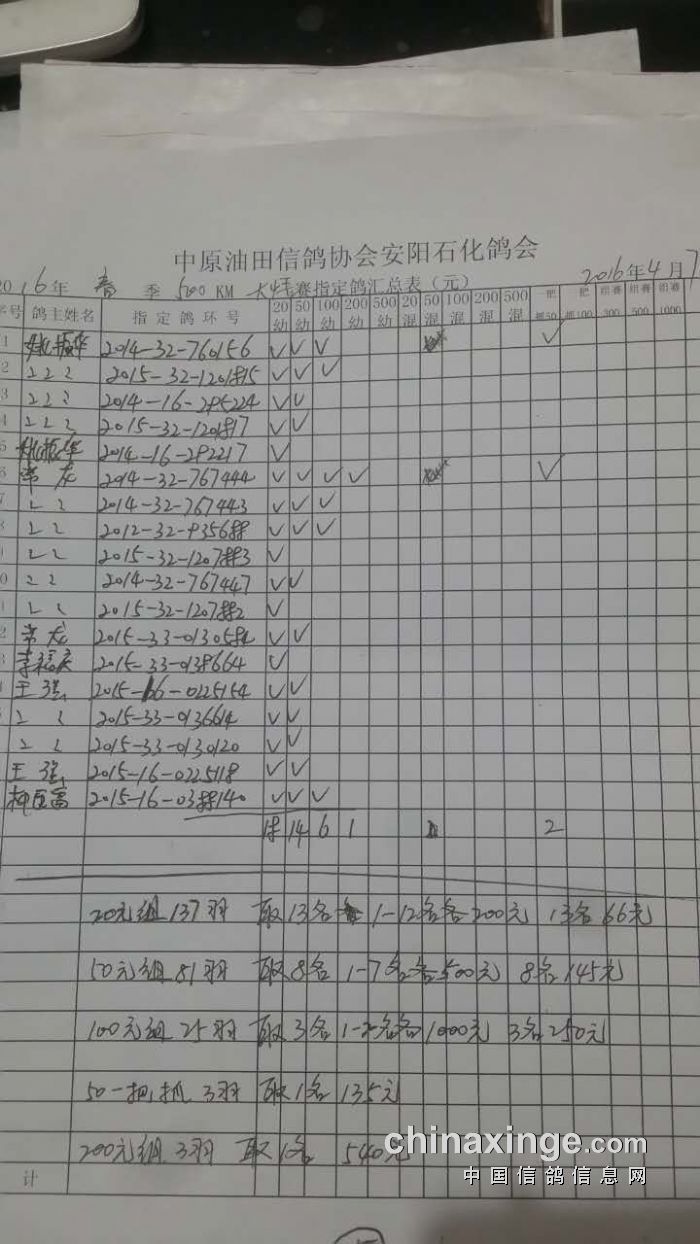 中原油田信鸽协会安阳石化鸽会
2016年 春 季 500 KM 大奖赛指定鸽汇总表（元） 2016年4月7
序号 鸽主姓名 指定鸽环号 20幼 50幼 100幼 200幼 500幼 20混 50混 100混 200混 500混 一把抓50 一把抓100 组赛300 组赛500 组赛1000
1 姚振华 2014-32-760156 ✓ ✓ ✓ ✓
2 2 2 2 2015-32-1201815 ✓ ✓ ✓
3 2 2 2 2014-16-295224 ✓ ✓
4 2 2 2 2015-32-1201817 ✓ ✓
5 姚振华 2014-16-292217 ✓
6 常龙 2014-32-767444 ✓ ✓ ✓ ✓ ✓
7 2 2 2014-32-767443 ✓ ✓ ✓
8 2 2 2012-32-935688 ✓ ✓ ✓
2 2 2015-32-1207883 ✓
0 2 2 2014-32-767447 ✓ ✓
1 2 2 2015-32-1207882 ✓
2 常龙 2015-33-0130582 ✓ ✓
3 李福庆 2015-33-0138664 ✓
王强 2015-16-0225154 ✓ ✓
2 2 2015-33-0136614 ✓ ✓
2 2 2015-33-0130120 ✓ ✓
王强 2015-16-0225118 ✓ ✓
柳臣富 2015-16-0388140 ✓ ✓ ✓
18 14 6 1 2
20元组 137羽 取13名 1-12名各200元 13名66元
50元组 81羽 取8名 1-7名各500元 8名145元
100元组 25羽 取3名 1-2名各1000元 3名250元
50一把抓 3羽 取1名 135元
200元组 3羽 取1名 540元
计
chinaxinge.com
中国信鸽信息网